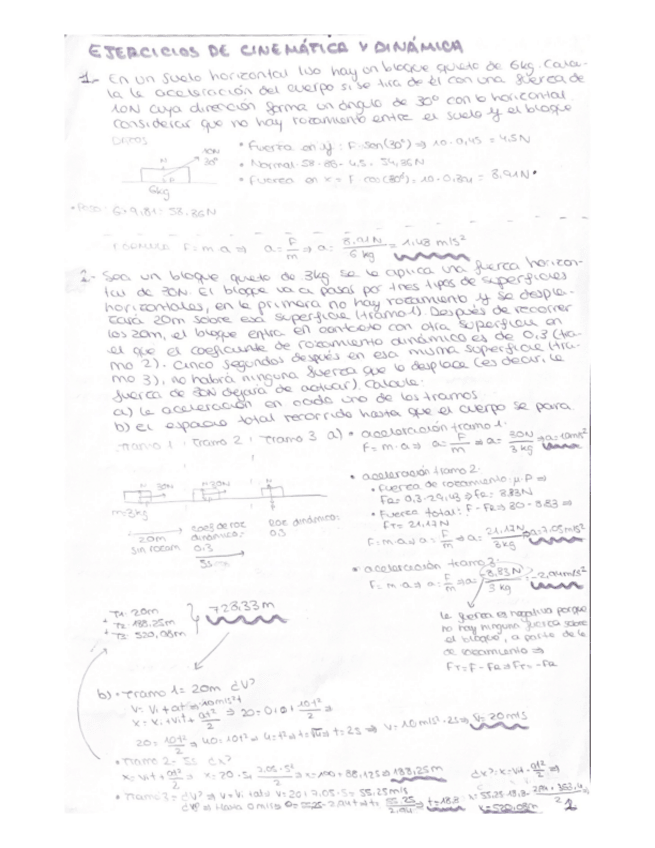 EJERCICIOS DE CINEMÁTICA Y DINÁMICA
1- En un suelo horizontal liso hay un bloque quieto de 6kg. Calcu-
la la aceleración del cuerpo si se tira de él con una fuerza de
10N cuya dirección forma un ángulo de 30º con la horizontal
Considerar que no hay rozamiento entre el suelo y el bloque
• Fuerza en y: F·sen(30º) ⇒ 10·0,45 = 4.5N
10N
30º
6kg
• Fuerza en x = F·cos(30º) = 10·0,
• Peso: 6·9,81 = 58,86N
F = m·a ⇒ a = F/m ⇒ a = 8,91N/6 kg = 1,48 m/s²
2- Sea un bloque quieto de 3kg se le aplica una fuerza horizon-
tal de 30N. El bloque va a pasar por tres tipos de superficies
horizontales, en la primera no hay rozamiento, y se despla-
zará 20m sobre esa superficie (tramo 1). Después de recorrer
los 20m, el bloque entra en contacto con otra superficie en
el que el coeficiente de rozamiento dinámico es de 0,3 (tra-
mo 2). Cinco segundos después en esa misma superficie (tra-
mo 3), no habrá ninguna fuerza que lo desplace (es decir, la
fuerza de 30N dejará de actuar). Calcule:
a) la aceleración en cada uno de los tramos
b) el espacio total recorrido hasta que el cuerpo se para
Tramo 1 Tramo 2 Tramo 3 a) • aceleración tramo 1:
F = m·a ⇒ a = F/m ⇒ a = 30N/3 kg ⇒ a = 10m/s²
• aceleración tramo 2:
• Fuerza de rozamiento: μ·P ⇒
FR = 0,3·29,43 ⇒ FR = 8.83N
• Fuerza total: F - FR ⇒ 30 - 8.83 ⇒
FT = 21,17N
30N 30N
m = 3kg
20m
sin rozam.
coef. de roc
dinámico:
0,3
5s
Roc dinámico:
0,3
F = m·a ⇒ a = F/m ⇒ a = 21,17N/3kg ⇒ a = 7.05m/s²
• aceleración tramo 3:
F = m·a ⇒ a = F/m ⇒ a = -8,83N/3 kg = -2,94m/s²
la fuerza es negativa porque
no hay ninguna fuerza sobre
el bloque, a parte de la
de rozamiento ⇒
FT = F - FR ⇒ FT = -FR
T1: 20m
+ T2: 188.25m
+ T3: 520,08m
728,33m
b) • Tramo 1 = 20m ¿V?
20 = 10t²/2 ⇒ 40 = 10t² ⇒ 4 = t² ⇒ t = √4 ⇒ t = 2s ⇒ V = 10m/s²·2s ⇒ V = 20m/s
• Tramo 2 = 5s ¿x?
x = 100 + 88,125 ⇒ 188,25m
• Tramo 3 = ¿V? ⇒ V = Vi + at ⇒ V = 20 + 7,05·5 = 55.25m/s
t = 18.8
x = 520,08m
1